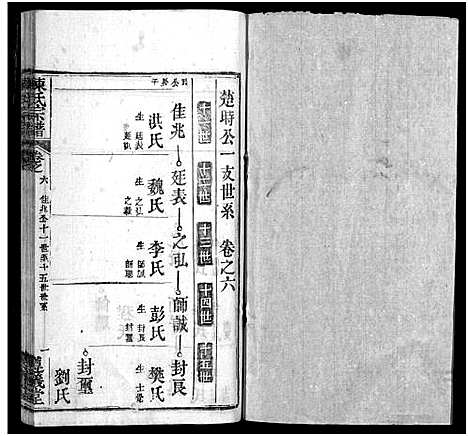 楚時公一支世系 卷之六
十一世 十二世 十三世 十四世 十五世
佳兆 廷表 之弘 師誠 封艮
洪氏 魏氏 李氏 彭氏 樊氏
生 廷表
生 之弘
生 師誠
生 封艮 封璽
生 士
封璽
劉氏
陳氏宗譜
卷之六 佳兆公十一世至十五世世系
一
義堂